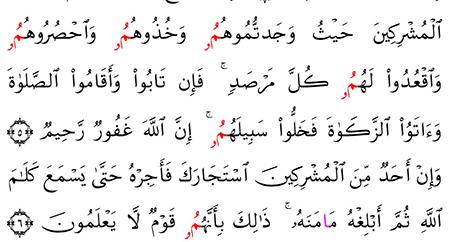 ٱلْمُشْرِكِينَ حَيْثُ وَجَدتُّمُوهُمُۥ وَخُذُوهُمُۥ وَٱحْصُرُوهُمُۥ
وَٱقْعُدُوا۟ لَهُمُۥ كُلَّ مَرْصَدٍ ۚ فَإِن تَابُوا۟ وَأَقَامُوا۟ ٱلصَّلَوٰةَ
وَءَاتَوُا۟ ٱلزَّكَوٰةَ فَخَلُّوا۟ سَبِيلَهُمُۥ ۚ إِنَّ ٱللَّهَ غَفُورٌ رَّحِيمٌ ﴿٥﴾
وَإِنْ أَحَدٌ مِّنَ ٱلْمُشْرِكِينَ ٱسْتَجَارَكَ فَأَجِرْهُ حَتَّىٰ يَسْمَعَ كَلَٰمَ
ٱللَّهِ ثُمَّ أَبْلِغْهُ مَامَنَهُۥ ۚ ذَٰلِكَ بِأَنَّهُمُۥ قَوْمٌ لَّا يَعْلَمُونَ ﴿٦﴾